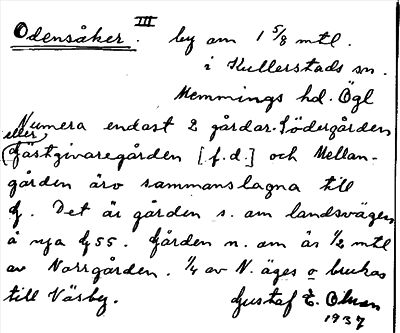 Odensåker. III by om 1 5/8 mtl.
i Kullerstads sn.
Memmings hd. Ögl
Numera endast 2 gårdar. Södergården
(eller Gästgivaregården [f.d.] och Mellan-
gården äro sammanslagna till
g. Det är gården s. om landsvägen
å nya G55. Gården n. om är 1/2 mtl
av Norrgården. 1/4 av N. äges o brukas
till Väsby. Gustaf E. Olsson
1937